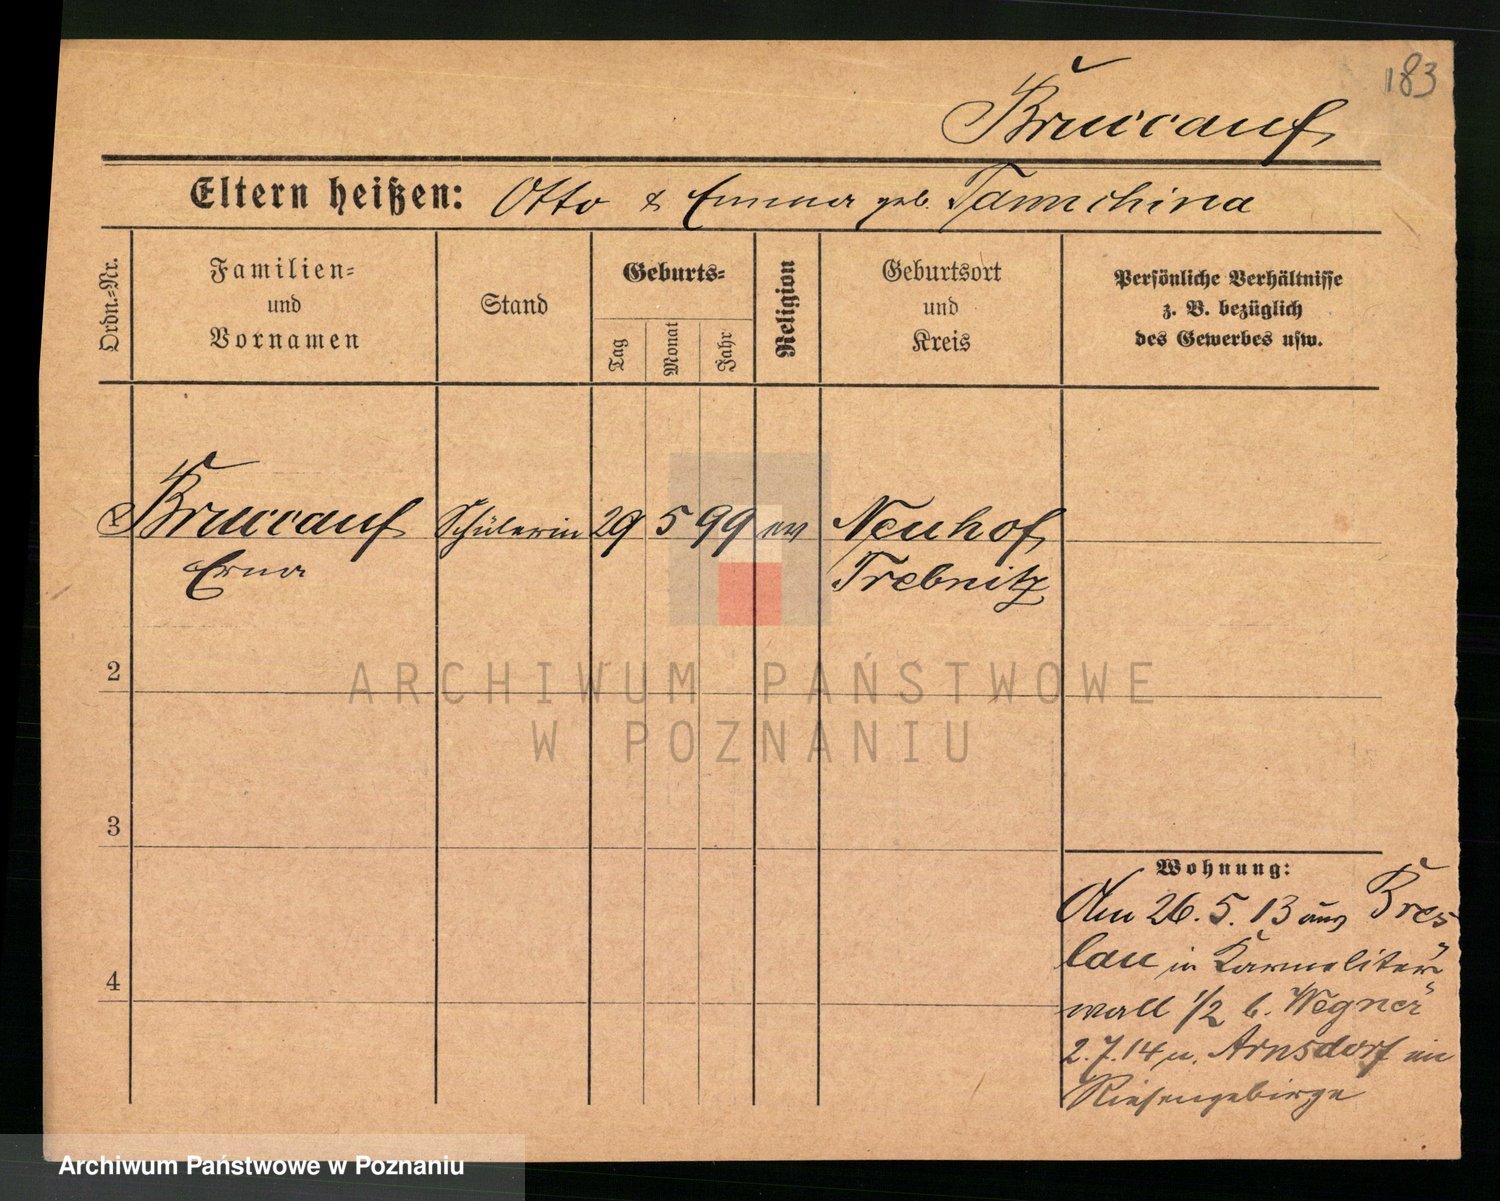 183
Bruccauf
Eltern heißen: Otto & Emma geb. Tamchina
Ordn.=Nr.
Familien=
und
Vornamen
Stand
Geburts=
Tag
Monat
Jahr
Religion
Geburtsort
und
Kreis
Persönliche Verhältnisse
z. B. bezüglich
des Gewerbes usw.
1 Bruccauf Schülerin 29 5 99 ev Neuhof
Erna Trebnitz
2
3
4
Wohnung:
Am 26. 5. 13 aus Bres
lau in Karmeliter
wall 1/2 b. Wegner
2.7.14 n. Arnsdorf im
Riesengebirge
ARCHIWUM PAŃSTWOWE
W POZNANIU
Archiwum Państwowe w Poznaniu